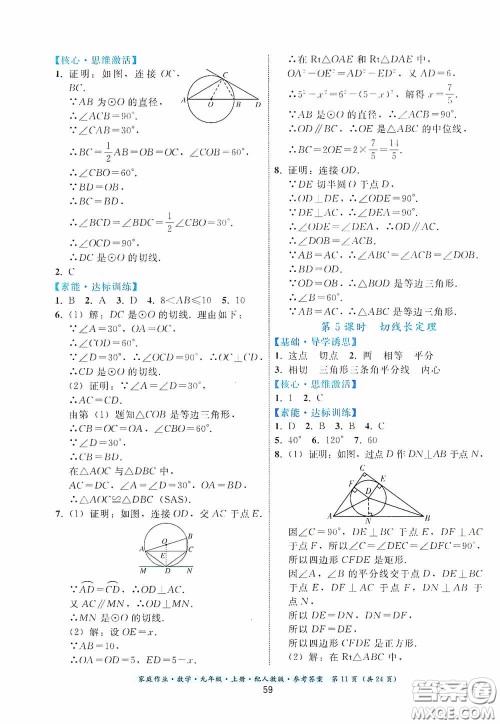 【核心·思维激活】
1. 证明：如图，连接 OC，
BC.
∵AB 为⊙O 的直径，
∴∠ACB=90°.
∵∠CAB=30°，
∴BC=1/2AB=OB=OC，∠COB=60°.
∴∠CBO=60°.
∵BD=OB，
∴BC=BD.
∴∠BCD=∠BDC=1/2∠CBO=30°.
∴∠OCD=90°.
∴DC 是⊙O 的切线.
2. C
【素能·达标训练】
1. B 2. A 3. D 4. 8<AB≤10 5. 10
6. (1) 解：DC 是⊙O 的切线. 理由如下：
∵∠A=30°，OA=OC，
∴∠COD=60°.
∵∠D=30°，∴∠OCD=90°，OC⊥CD.
∴DC 是⊙O 的切线.
(2) 证明：∵∠A=∠D=30°，
∴AC=CD.
由第 (1) 题知△COB 是等边三角形，
∴∠CBO=60°.
∵∠D=30°，∴∠BCD=30°.
在△AOC 与△DBC 中，
AC=DC，∠A=∠D，∠ACO=∠BCD，
∴△AOC≌△DBC (SAS).
7. (1) 证明：如图，连接 OD，交 AC 于点 E.
A O B C E M D N
∵AD=CD，∴OD⊥AC.
又 AC∥MN，∴OD⊥MN.
∴MN 是⊙O 的切线.
(2) 解：设 OE=x.
∵AB=10，∴OA=5，ED=5−x.
∴在 Rt△OAE 和 Rt△DAE 中，
OA²−OE²=AD²−ED²，又 AD=6，
∴5²−x²=6²−(5−x)²，解得 x=7/5.
由于 AB 是⊙O 的直径，∴∠C=90°.
∴OD∥BC，∴OE 是△ABC 的中位线.
∴BC=2OE=2×7/5=14/5.
8. 证明：连接 OD.
∵DE 切半圆 O 于点 D，
∴OD⊥DE，∴∠ODE=90°.
∵DE⊥AC，∴∠DEA=90°.
∴∠ODE=∠DEA，∴OD∥AC.
∴∠ODB=∠C.
∵OB=OD，∴∠B=∠ODB，∴∠B=∠C.
∴AB=AC.
又∵∠BAC=60°，∴△ABC 是等边三角形.
第 5 课时 切线长定理
【基础·导学诱思】
1. 这点 切点 2. 两 相等 平分
3. 相切 三角形三条角平分线 内心
【核心·思维激活】
1. 1 2. C
【素能·达标训练】
1. D 2. D 3. B 4. C
5. 40° 6. 120° 7. 60
8. (1) 证明：如图，过点 D 作 DN⊥AB 于点
N.
C F E D A N B
因∠C=90°，DE⊥BC 于点 E，DF⊥AC
于点 F，所以∠C=∠DEC=∠DFC=90°.
所以四边形 CFDE 是矩形.
因∠A，∠B 的平分线交于点 D，DN⊥
AB 于点 N，DE⊥BC 于点 E，DF⊥AC
于点 F，
所以 DE=DN，DF=DN.
所以 DF=DE.
所以四边形
家庭作业·数学·九年级·上册·配人教版·参考答案 第 11 页 (共 24 页)
59